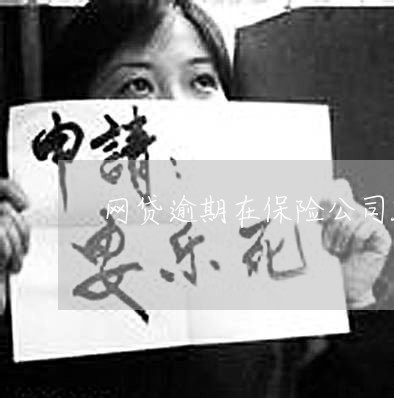 申請：
网贷逾期在保险公司.
要乐死